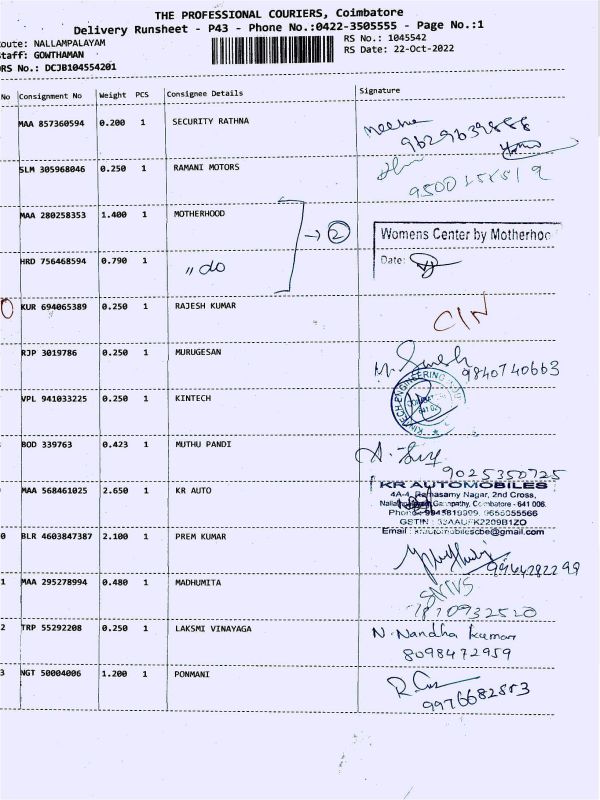 THE PROFESSIONAL COURIERS, Coimbatore
Delivery Runsheet - P43 - Phone No.:0422-3505555 - Page No.:1
Route: NALLAMPALAYAM
RS No.: 1045542
Staff: GOWTHAMAN
RS Date: 22-Oct-2022
DRS No.: DCJB104554201
No Consignment No Weight PCS Consignee Details Signature
MAA 857360594 0.200 1 SECURITY RATHNA
SLM 305968046 0.250 1 RAMANI MOTORS
MAA 280258353 1.400 1 MOTHERHOOD → 2 Womens Center by Motherhoo
HRD 756468594 0.790 1 〃 do Date:
KUR 694065389 0.250 1 RAJESH KUMAR
RJP 3019786 0.250 1 MURUGESAN 9840740663
VPL 941033225 0.250 1 KINTECH
BOD 339763 0.423 1 MUTHU PANDI 9025350725
MAA 568461025 2.650 1 KR AUTO KR AUTOMOBILES
4A-4, Ramasamy Nagar, 2nd Cross,
Ganapathy, Coimbatore - 641 006.
0 BLR 4603847387 2.100 1 PREM KUMAR
1 MAA 295278994 0.480 1 MADHUMITA
2 TRP 55292208 0.250 1 LAKSMI VINAYAGA N. Nandha kumar
8098472959
3 NGT 50004006 1.200 1 PONMANI